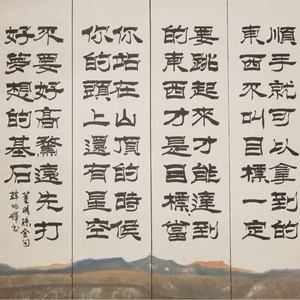 順手就可以拿到的
東西不叫目標一定
要跳起來才能達到
的東西才是目標當
你站在山頂的時候
你的頭上還有星空
不要好高騖遠先打
好夢想的基石
董明珠金句